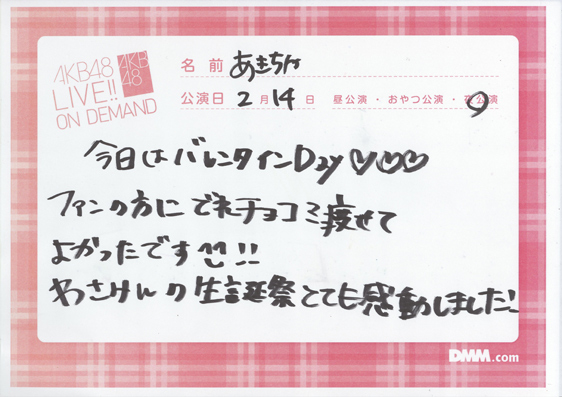 AKB48
LIVE!!
ON DEMAND
AKB
48
名前 あきちゃ
公演日 2月14日 昼公演・おやつ公演・夜公演
今日はバレンタインDay♡♡♡
ファンの方に チョコ 渡せて
よかったです !!
生誕祭とても感動しました!
DMM.com